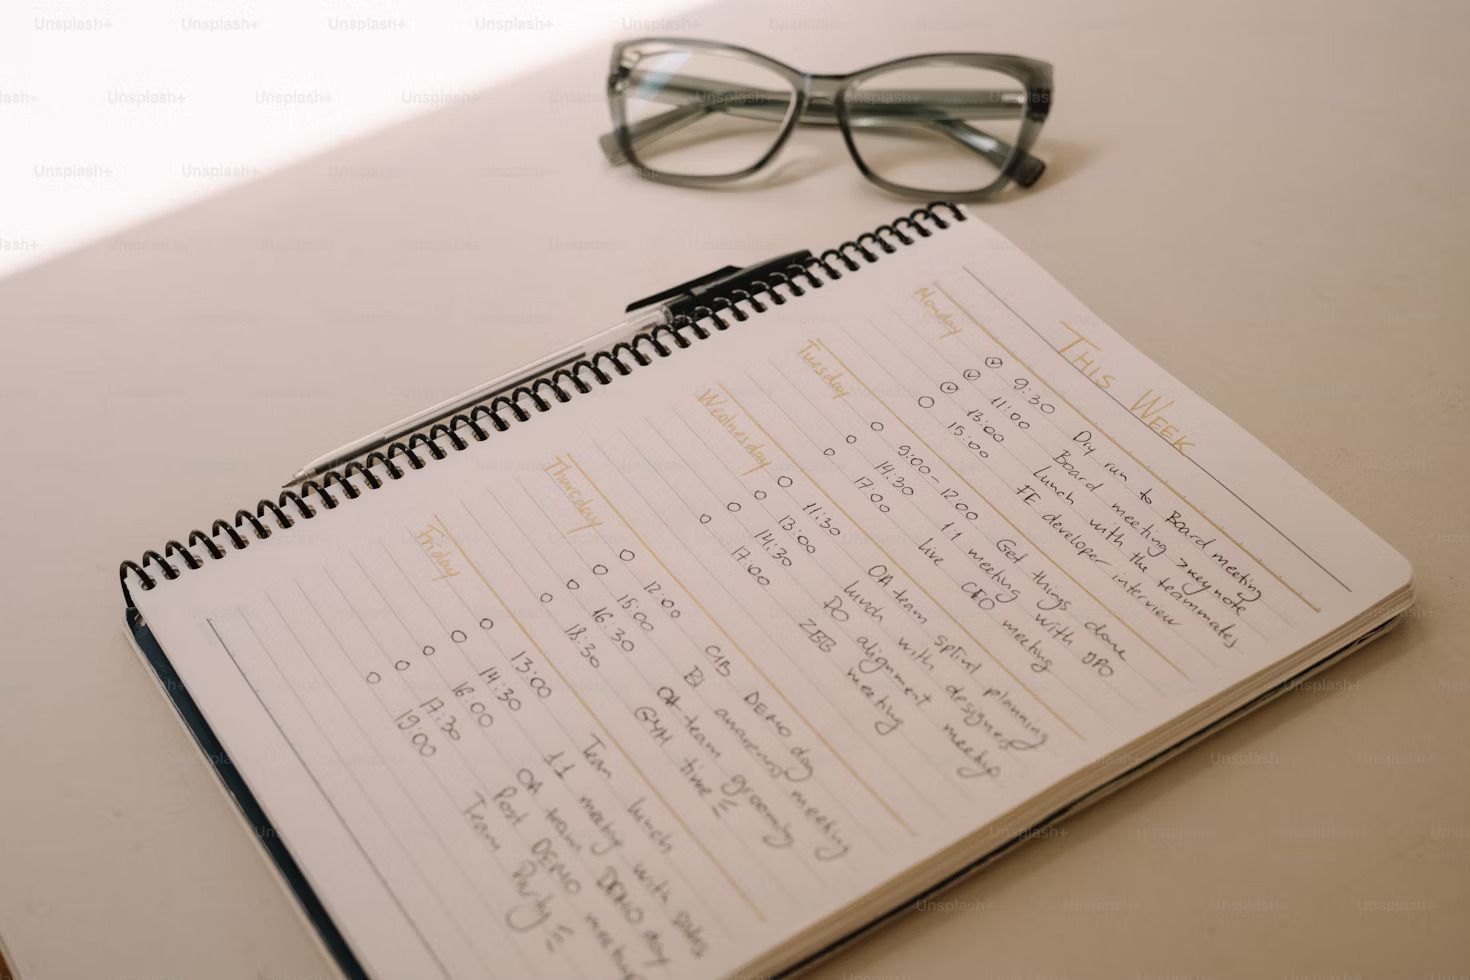 THIS WEEK
Monday
9:30 Dry run to Board meeting
11:00 Board meeting > keynote
13:00 Lunch with the teammates
15:00 FE developer interview
Tuesday
9:00-12:00 Get things done
14:30 1:1 meeting with DPO
17:00 Live CEO meeting
Wednesday
11:30 OA team sprint planning
13:00 Lunch with designers
14:30 PO alignment meetup
17:00 ZBB meeting
Thursday
12:00 CIB DEMO day
15:00 BI awareness meeting
16:30 OA team grooming
18:30 GYM time
Friday
13:00 Team lunch
14:30 1:1 meeting with sales
16:00 OA team DEMO day
17:30 Post DEMO meeting
19:00 Team Party
Unsplash+